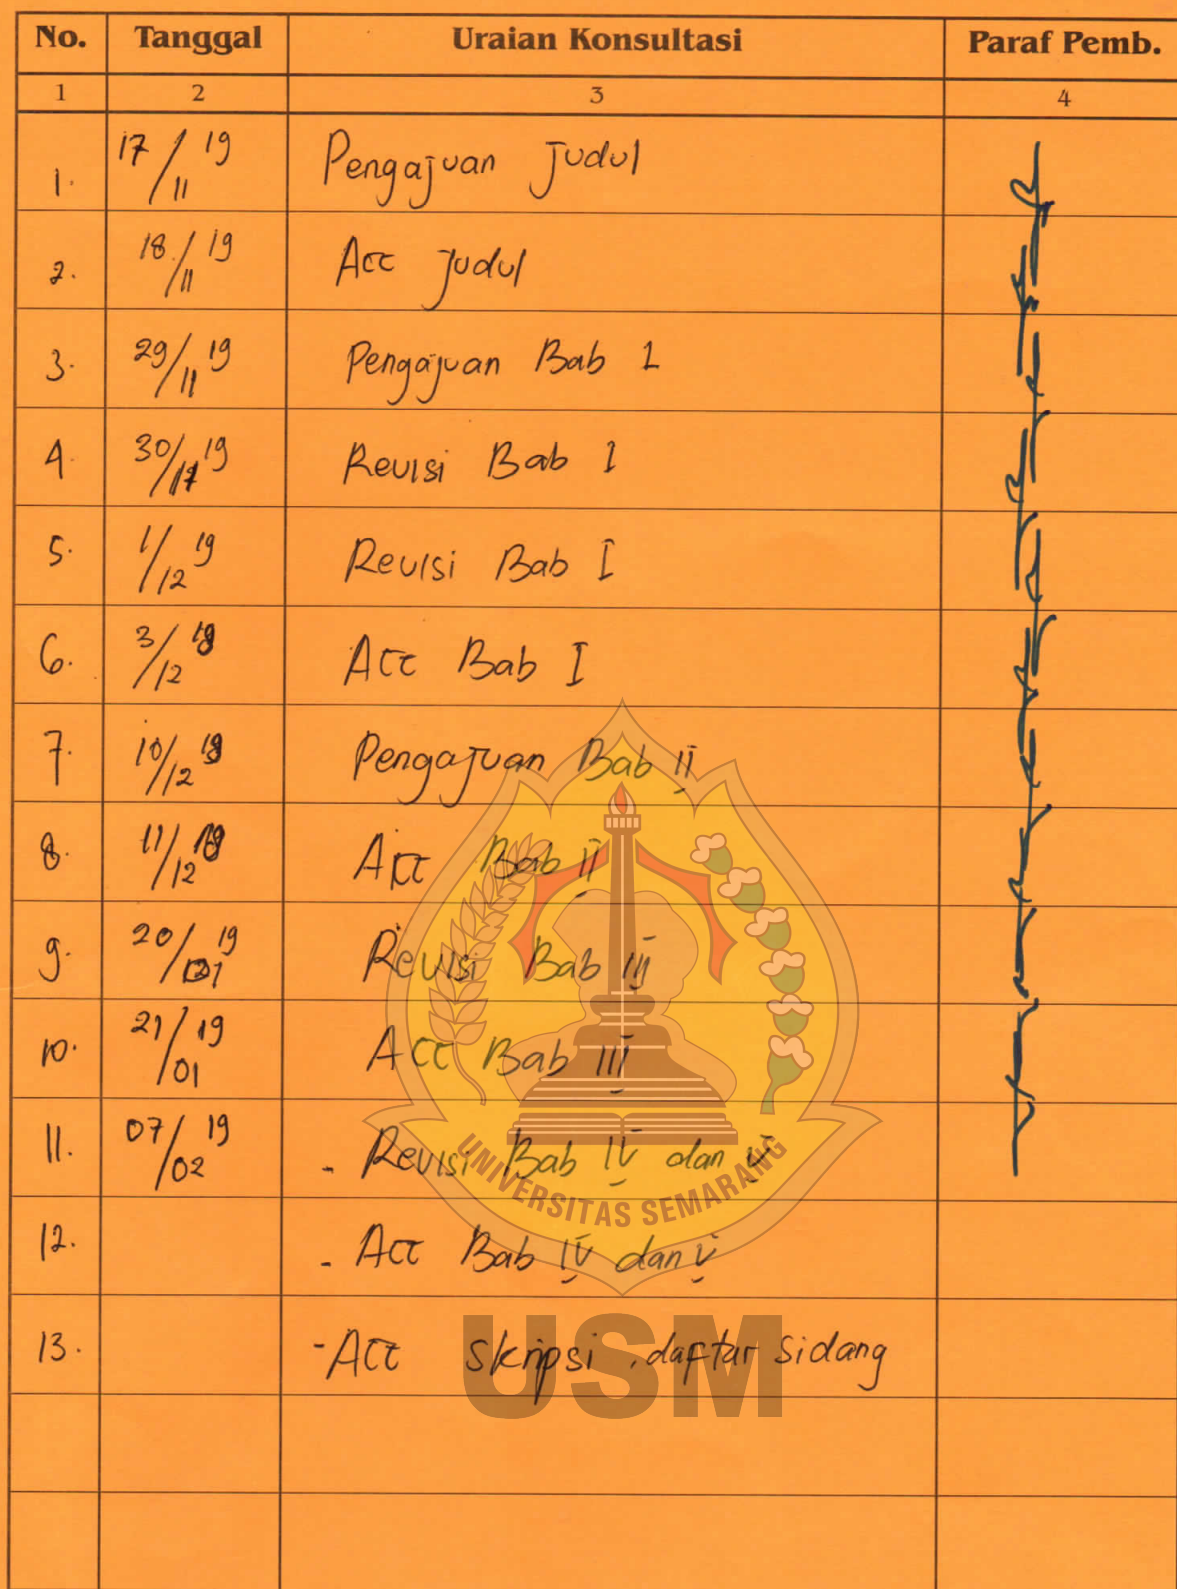 No. Tanggal Uraian Konsultasi Paraf Pemb.
1 2 3 4
1. 17/11 19 Pengajuan Judul
2. 18/11 19 Acc Judul
3. 29/11 19 Pengajuan Bab 1
4. 30/11 19 Revisi Bab I
5. 1/12 19 Revisi Bab I
6. 3/12 Acc Bab I
7. 10/12 Pengajuan Bab II
8. 11/12 Acc Bab II
9. 20/ 19 Revisi Bab III
10. 21/01 19 Acc Bab III
11. 07/02 19 - Revisi Bab IV dan V
UNIVERSITAS SEMARANG
12. - Acc Bab IV dan V
13. - Acc Skripsi, daftar sidang
USM